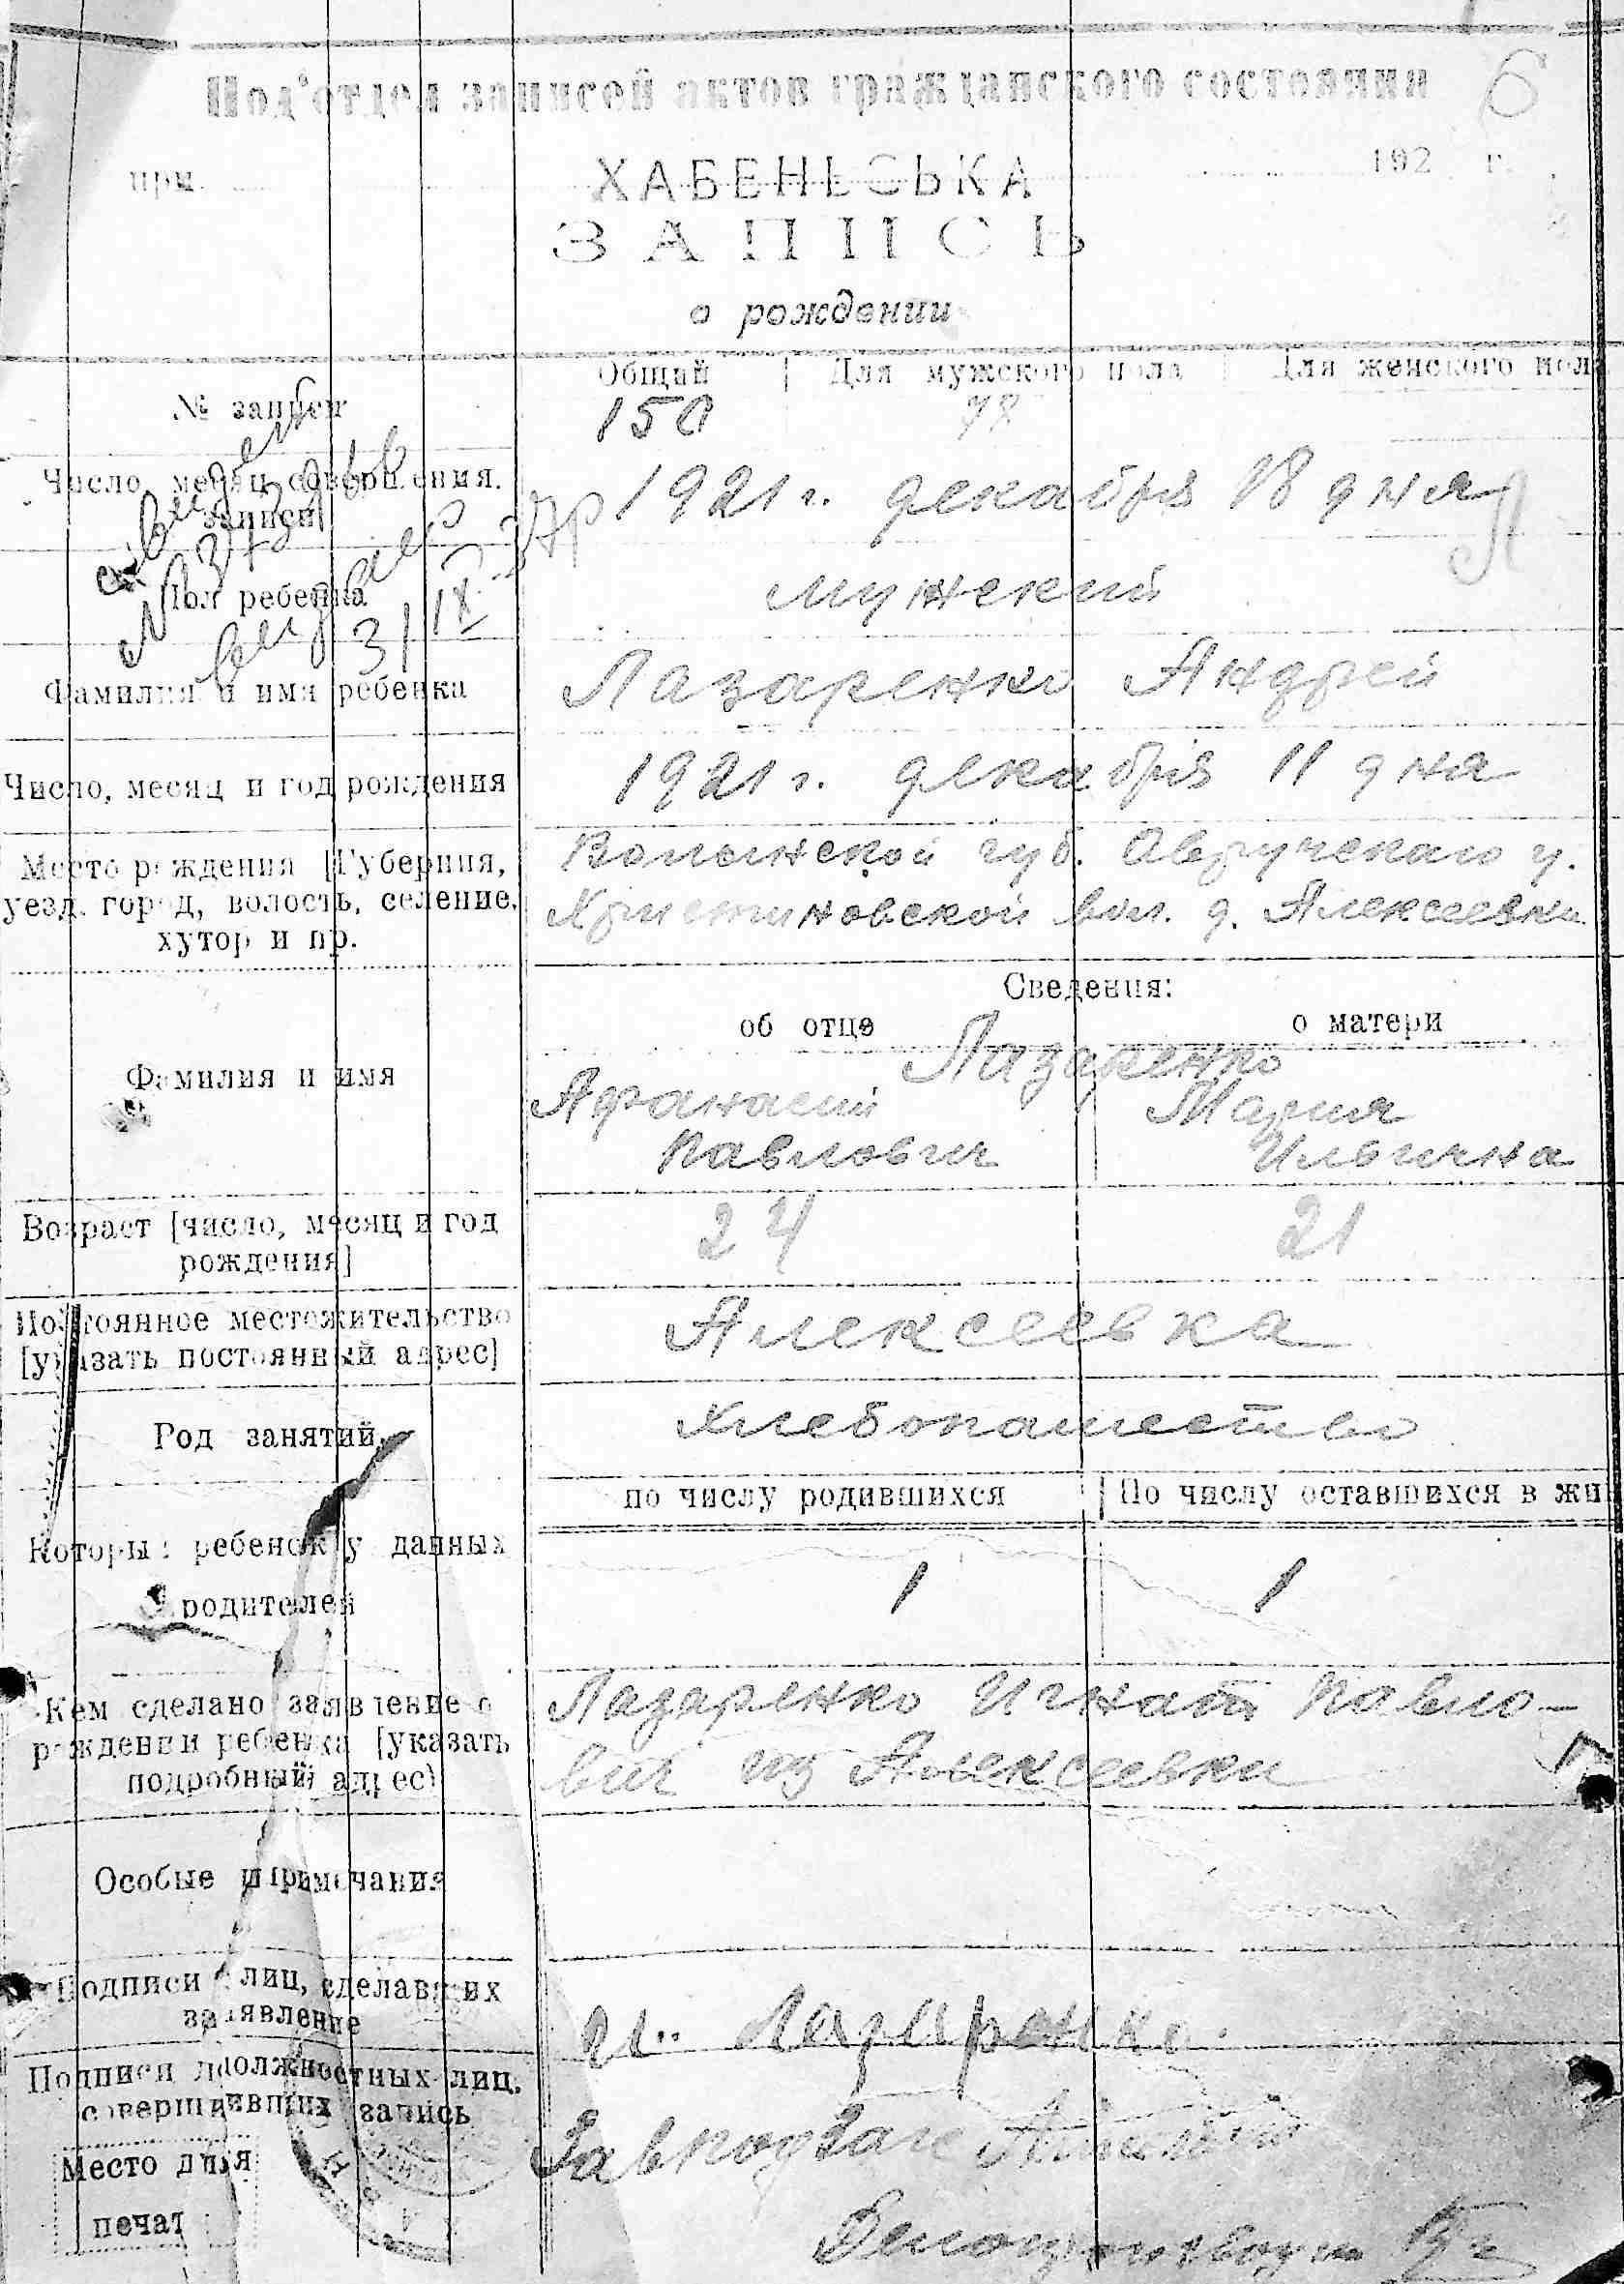 Под'отдел записей актов гражданского состояния
6
при ХАБЕНЬСЬКА 192 г.
ЗАПИСЬ
о рождении
№ записи
Общий | Для мужского пола | Для женского пола
150 78
Число, месяц совершения записи
1921 г. декабря 18 дня
Пол ребенка
мужской
Фамилия и имя ребенка
Лазаренко Андрей
Число, месяц и год рождения
1921 г. декабря 11 дня
Место рождения [Губерния,
уезд, город, волость, селение,
хутор и пр.
Волынской губ. Овручскаго у.
Христиновской вол. д. Алексеевка
Сведения:
об отце о матери
Фамилия и имя
Лазаренко
Афанасий Мария
Павлович Ильична
Возраст [число, месяц и год
рождения]
24 21
Постоянное местожительство
[указать постоянный адрес]
Алексеевка
Род занятий.
Хлебопашество
по числу родившихся | По числу оставшихся в жи
Который ребенок у данных
родителей
1 1
Кем сделано заявление о
рождении ребенка [указать
подробный адрес)
Лазаренко Игнат Павло-
вич из Алексеевки
Особые примечания
Подписи лиц, сделавших
заявление
И. Лазаренко.
Подписи должностных лиц,
совершивших запись
Завподзаг
Место для
печат
Делопроизводит